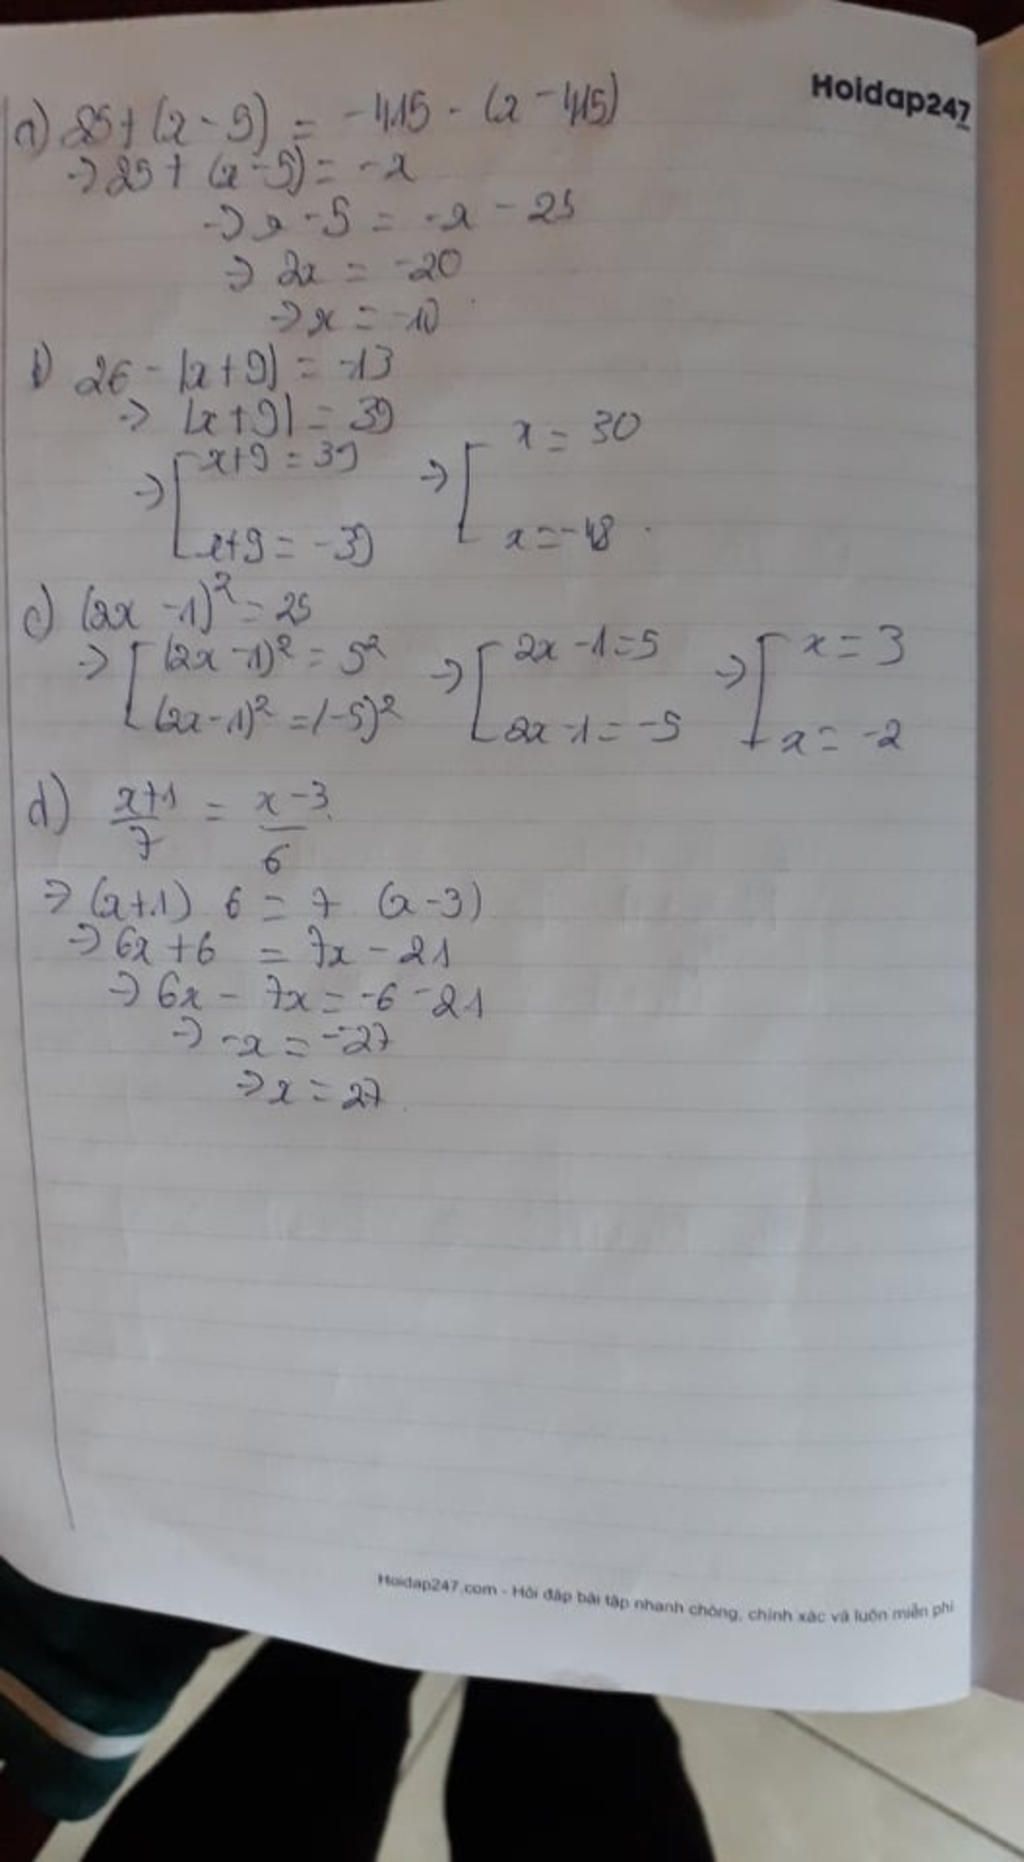 Hoidap247
a) 25+ (x - 5) = -415 - (x - 415)
→ 25 + (x - 5) = -x
→ x - 5 = -x - 25
→ 2x = -20
→ x = -10
b) 26 - |x+9| = -13
→ |x+9| = 39
→ [ x+9 = 39 → [ x = 30
x+9 = -39 x = -48
c) (2x - 1)² = 25
→ [ (2x - 1)² = 5² → [ 2x - 1 = 5 → [ x = 3
(2x - 1)² = (-5)² 2x - 1 = -5 x = -2
d) x+1/7 = x-3/6
→ (x+1) 6 = 7 (x-3)
→ 6x + 6 = 7x - 21
→ 6x - 7x = -6 -21
→ -x = -27
→ x = 27
Hoidap247.com - Hỏi đáp bài tập nhanh chóng, chính xác và luôn miễn phí